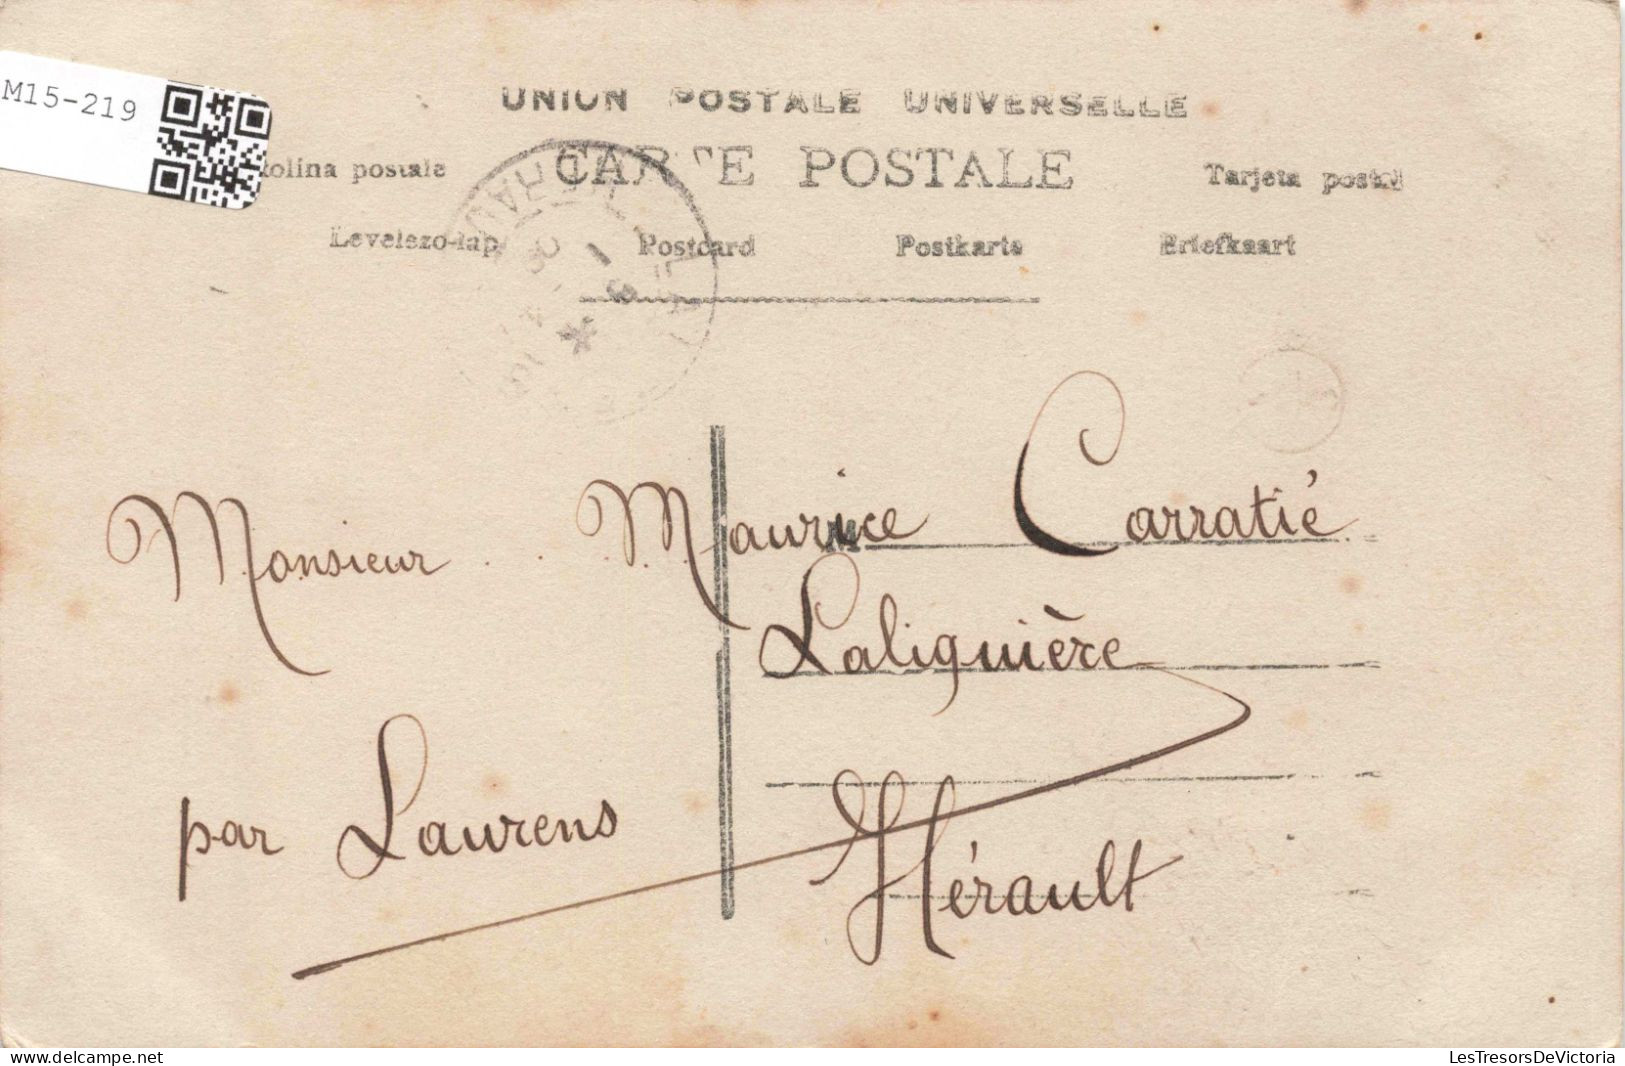 M15-219
UNION POSTALE UNIVERSELLE
CARTE POSTALE
olina postale
Tarjeta postal
Levelezo-lap
Postcard
Postkarte
Briefkaart
Monsieur Maurice Carratié
Laliguière
par Laurens
Hérault
www.delcampe.net
LesTresorsDeVictoria